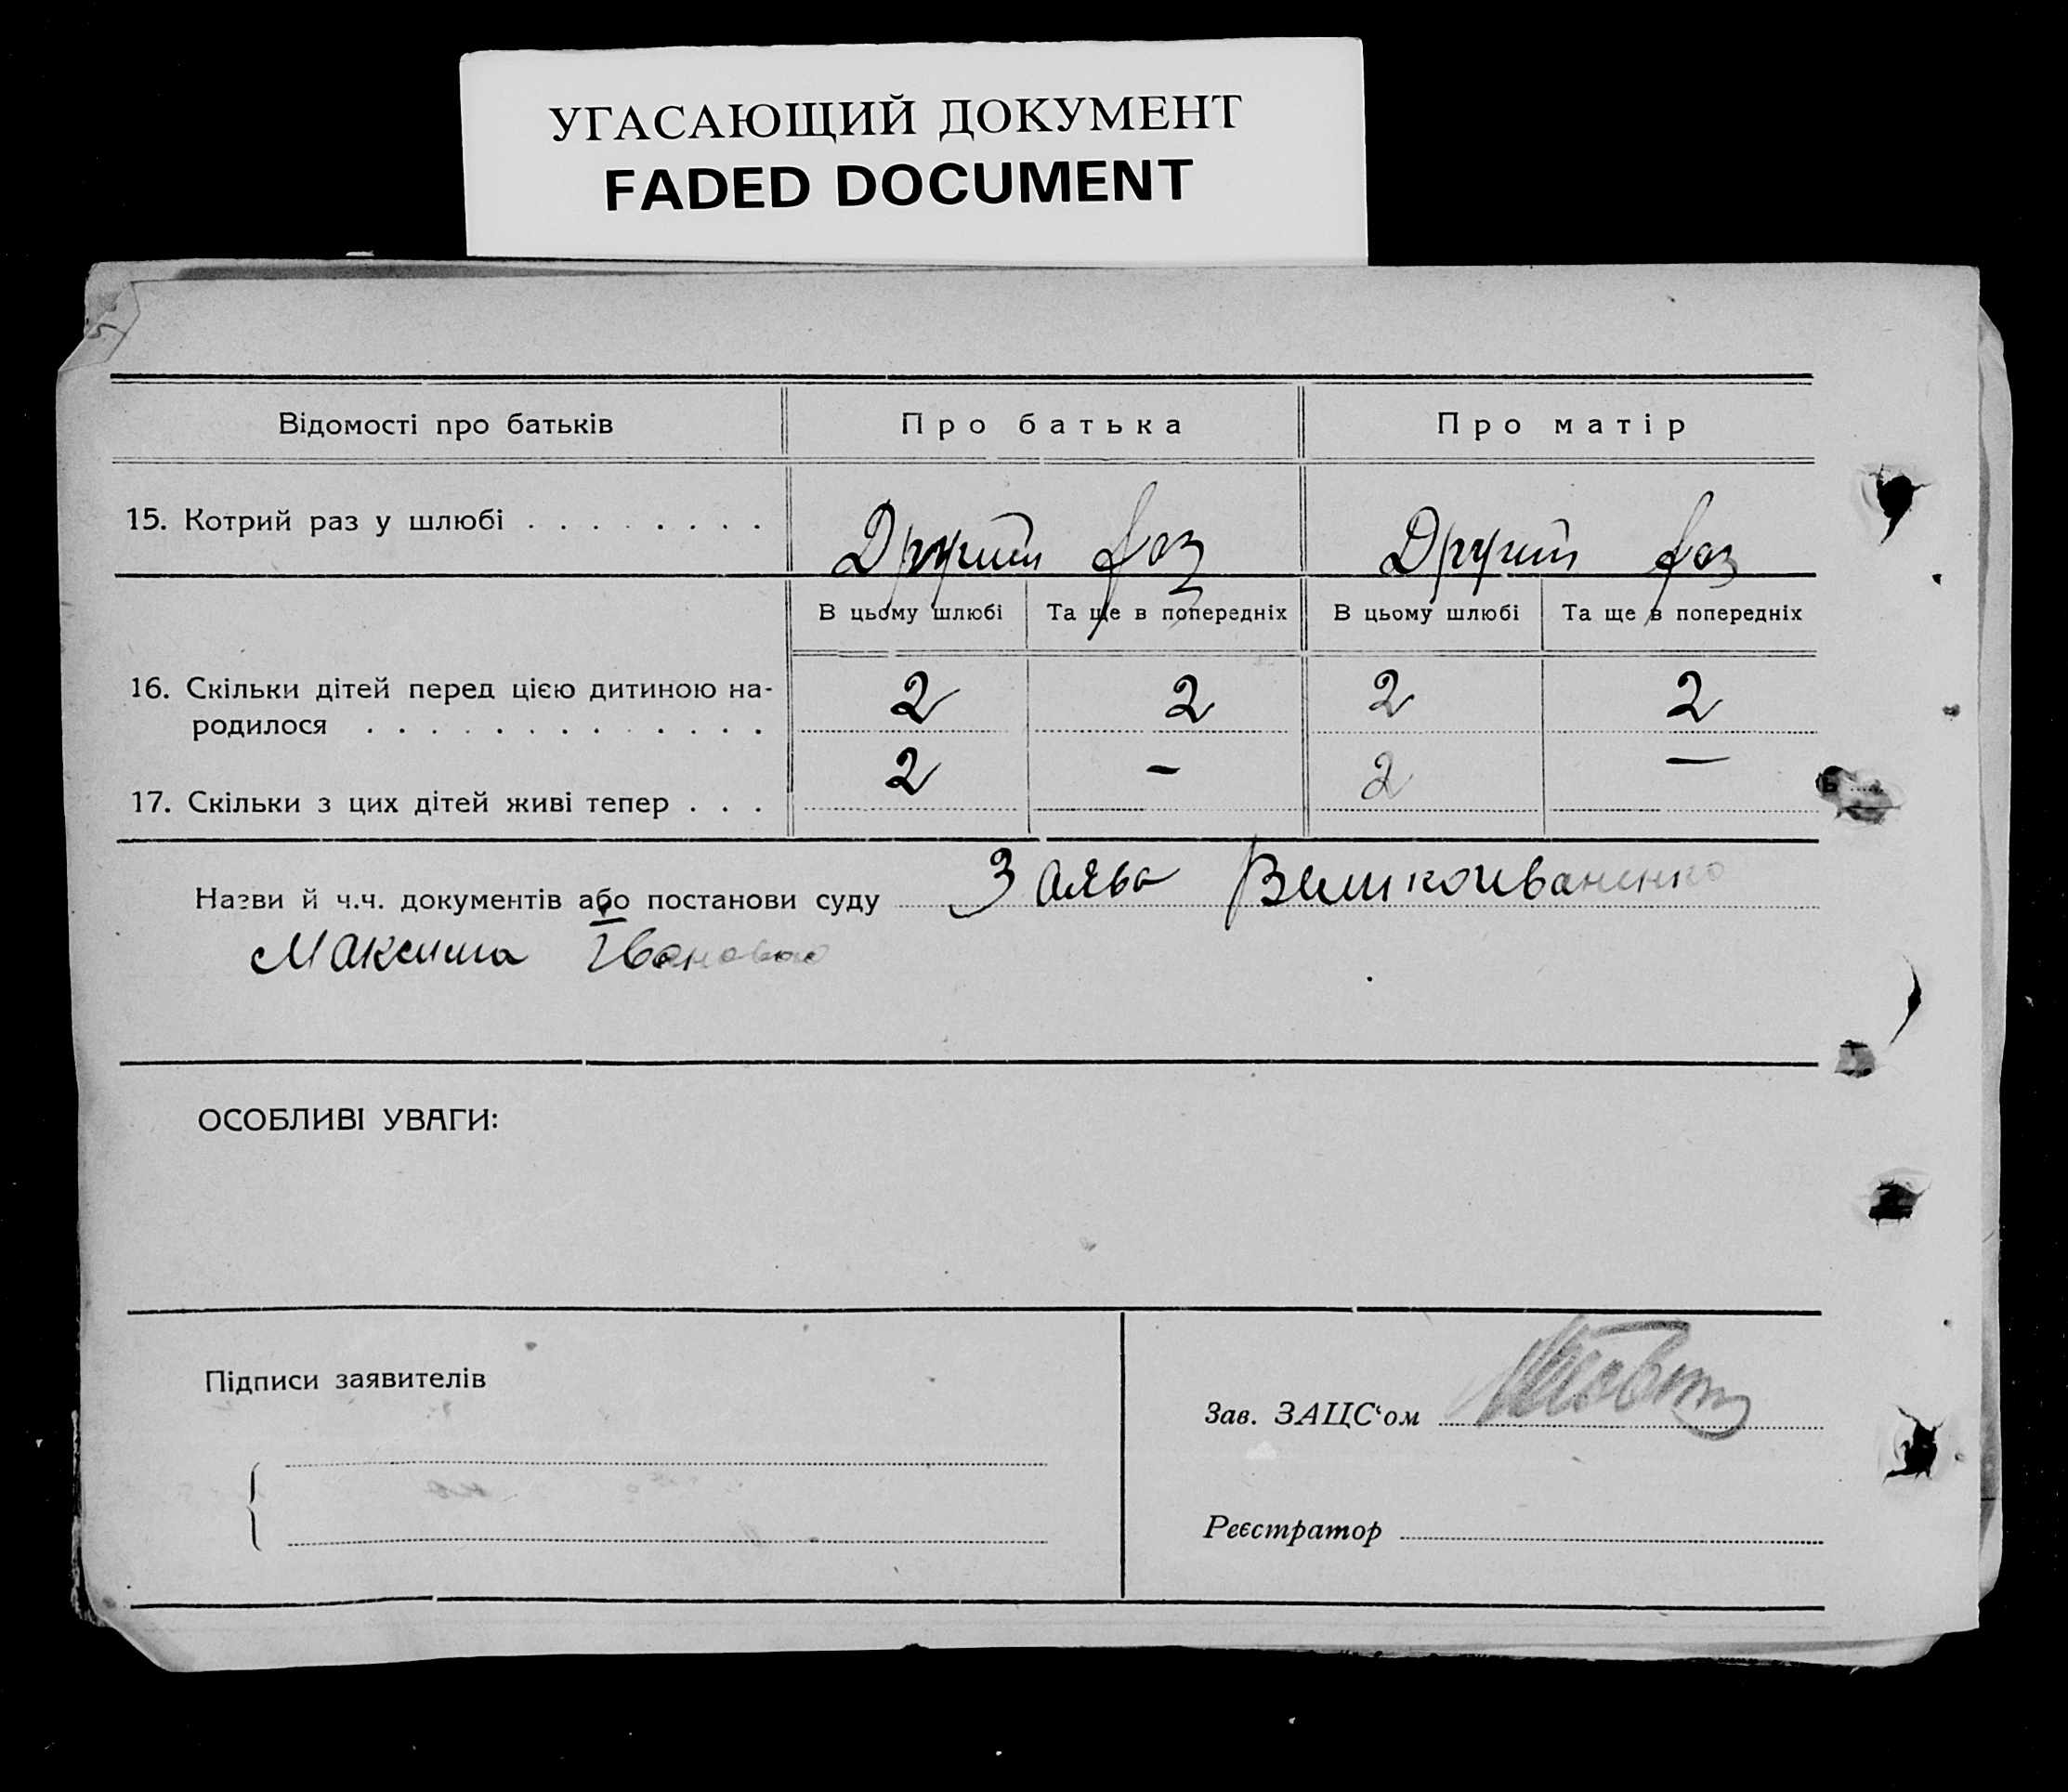 УГАСАЮЩИЙ ДОКУМЕНТ
FADED DOCUMENT
Відомості про батьків Про батька Про матір
15. Котрий раз у шлюбі . . . . . . . . Другий раз Другий раз
В цьому шлюбі Та ще в попередніх В цьому шлюбі Та ще в попередніх
16. Скільки дітей перед цією дитиною на-
родилося . . . . . . . . . . . . . 2 2 2 2
17. Скільки з цих дітей живі тепер . . . 2 – 2 –
Назви й ч.ч. документів або постанови суду Заява Великоиваненко
Максима
ОСОБЛИВІ УВАГИ:
Підписи заявителів
Зав. ЗАЦС‘ом
Реєстратор